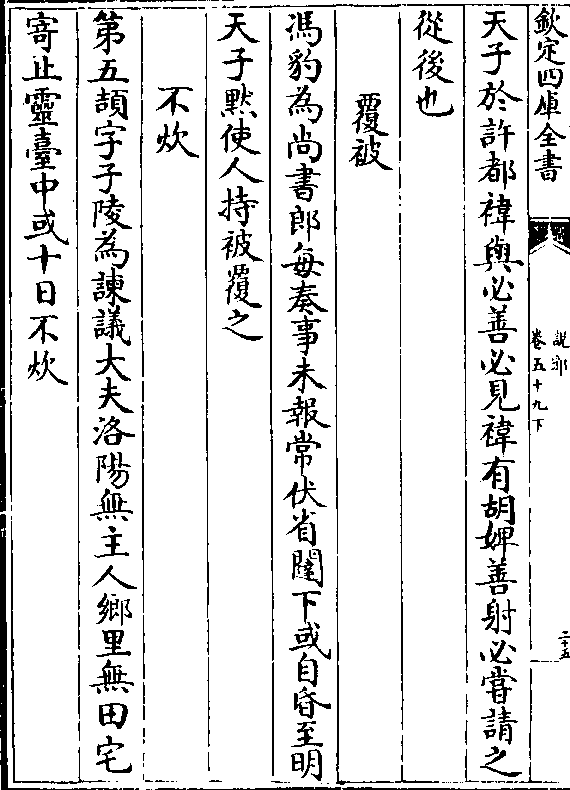 欽定四庫全書
說郛
卷五十九下
二十五
天子於許都禕與必善必見禕有胡婢善射必嘗請之
從後也
覆被
馮豹為尚書郎每奏事未報常伏省閣下或自昏至明
天子黙使人持被覆之
不炊
第五頡字子陵為諫議大夫洛陽無主人鄉里無田宅
寄止靈臺中或十日不炊